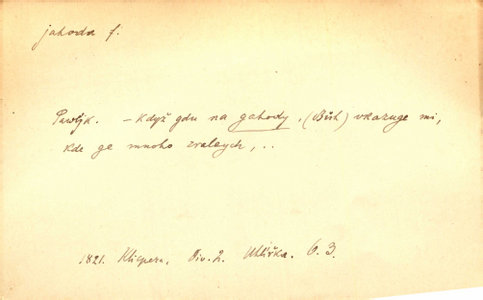 jahoda f.
Pawljk. – Když gdu na gahody, (Bůh) vkazuge mi,
kde ge mnoho zralých, ..
1821. Klicpera, Div. 2. Uhlířka. 6. 3.